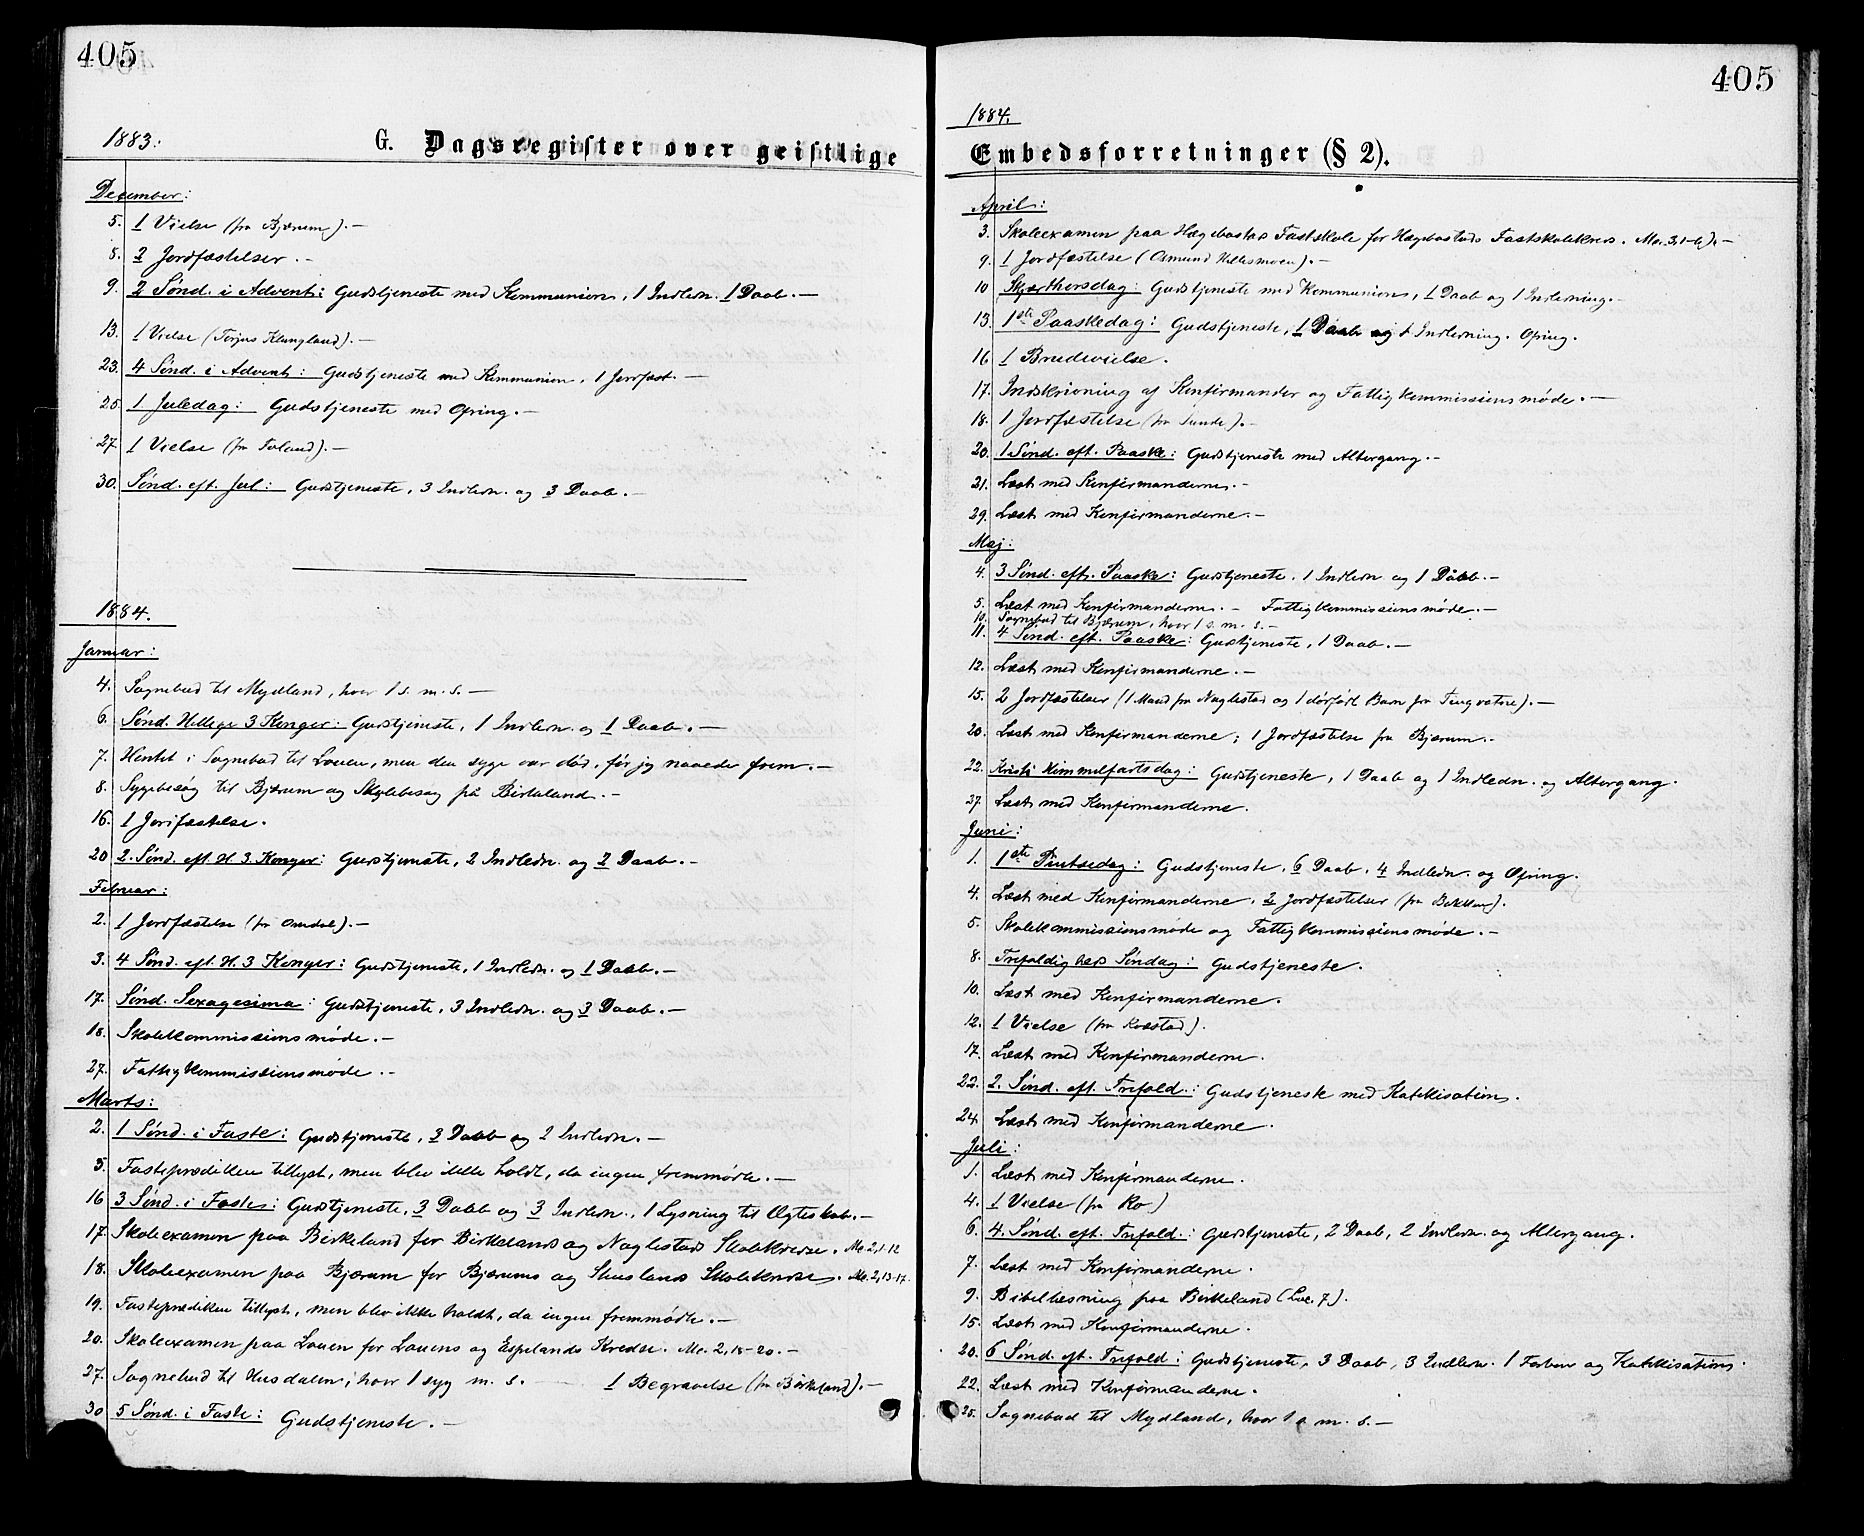 405
1883.
G. Dagsregister over geistlige
December:
5. 1 Vielse (fra Bjærum). —
8. 2 Jordfæstelser. —
9. 2 Sønd. i Advent: Gudstjeneste med Kommunion, 1 Indledn. 1 Daab. —
13. 1 Vielse (Terjus Klungland). —
23. 4 Sønd. i Advent: Gudstjeneste med Kommunion, 1 Jordfæst. —
25. 1 Juledag: Gudstjeneste med Ofring. —
27. 1 Vielse (fra Foland). —
30. Sønd. eft. Jul: Gudstjeneste, 3 Indledn. og 3 Daab. —
1884.
Januar:
4. Sognebud til Mydland, hvor 1 s. m. s. —
6. Sønd. Hellige 3 Konger: Gudstjeneste, 1 Indledn. og 1 Daab. —
7. Hentet i Sognebud til Louen, men den syge var død, før jeg naaede frem. —
8. Sygebesøg til Bjærum og Skolebesøg på Birkeland. —
16. 1 Jordfæstelse.
20 2. Sønd. eft. H. 3. Konger: Gudstjeneste, 2 Indledn. og 2 Daab. —
Februar:
2. 1 Jordfæstelse (fra Omdal). —
3. 4 Sønd. eft. H. 3 Konger: Gudstjeneste, 1 Indledn. og 1 Daab. —
17. Sønd. Sexagesima: Gudstjeneste, 3 Indledn. og 3 Daab. —
18. Skolekommissionsmøde. —
27. Fattigkommissionsmøde. —
Marts:
2. 1 Sønd. i Faste: Gudstjeneste, 3 Daab og 2 Indledn. —
5. Fasteprædiken tillyst, men blev ikke holdt, da ingen fremmødte. —
16 3 Sønd. i Faste: Gudstjeneste, 3 Daab og 3 Indledn., 1 Lysning til Ægteskab. —
17. Skoleexamen paa Birkeland for Birkelands og Naglestads Skolekredse. Mc. 2, 1-12
18. Skoleexamen paa Bjærum for Bjærums og Skeislands Skolekredse. Mc. 2, 13-17.
19. Fasteprædiken tillyst, men blev ikke holdt, da ingen fremmødte. —
20. Skoleexamen paa Louen for Louens og Espelands Kredse. Mc. 2, 18-20. —
27. Sognebud til Husdalen, hvor 1 syg m. s. — 1 Begravelse (fra Birkeland). —
30 5 Sønd. i Faste: Gudstjeneste. —
405
1884.
Embedsforretninger (§ 2).
April:
3. Skoleexamen paa Hægebostad Fastskole for Hægebostads Fastskolekreds. Mc. 3, 1-6). —
9. 1 Jordfæstelse (Osmund Hillesmoen). —
10 Skjærthorsdag: Gudstjeneste med Kommunion, 1 Daab og 1 Indledning. —
13. 1ste Paaskedag: Gudstjeneste, 1 Daab og 1 Indledning. Ofring.
16 1 Brudevielse.
17. Indskrivning af Konfirmander og Fattigkommissionsmøde. —
18. 1 Jordfæstelse (fra Sunde). —
20. 1 Sønd. eft. Paaske: Gudstjeneste med Altergang. —
21. Læst med Konfirmanderne. —
29. Læst med Konfirmanderne. —
Maj:
4. 3 Sønd. eft. Paaske: Gudstjeneste, 1 Indledn og 1 Daab. —
5. Læst med Konfirmanderne. — Fattigkommissionsmøde. —
10. Sognebud til Bjærum, hvor 1 s. m. s. —
11. 4 Sønd. eft. Paaske: Gudstjeneste, 1 Daab. —
12. Læst med Konfirmanderne. —
15. 2 Jordfæstelser (1 Mand fra Naglestad og 1 dødfødt Barn fra Tingvatne). —
20. Læst med Konfirmanderne; 1 Jordfæstelse fra Bjærum. —
22. Kristi Himmelfartsdag: Gudstjeneste, 1 Daab og 1 Indledn. og Altergang.
27. Læst med Konfirmanderne.
Juni:
1. 1ste Pintsedag: Gudstjeneste, 6 Daab, 4 Indledn. og Ofring.
4. Læst med Konfirmanderne, 2 Jordfæstelser (fra Bakken).
5. Skolekommissionsmøde og Fattigkommissionsmøde. —
8. Trefoldigheds Søndag: Gudstjeneste.
10. Læst med Konfirmanderne.
12. 1 Vielse (fra Kvæstad).
17. Læst med Konfirmanderne.
22. 2. Sønd. eft. Trefold.: Gudstjeneste med Katekisation.
24. Læst med Konfirmanderne.
Juli:
1. Læst med Konfirmanderne.
4. 1 Vielse (fra Ro)
6. 4. Sønd. eft. Trefold.: Gudstjeneste, 2 Daab, 2 Indledn og Altergang.
7. Læst med Konfirmanderne.
9. Bibellæsning paa Birkeland (Luc. 7).
15. Læst med Konfirmanderne.
20. 6 Sønd. eft. Trefold: Gudstjeneste, 3 Daab, 3 Indledn. 1 Forbøn og Katekisation.
22. Læst med Konfirmanderne.
25. Sognebud til Mydland, hvor 1 s m. s. —